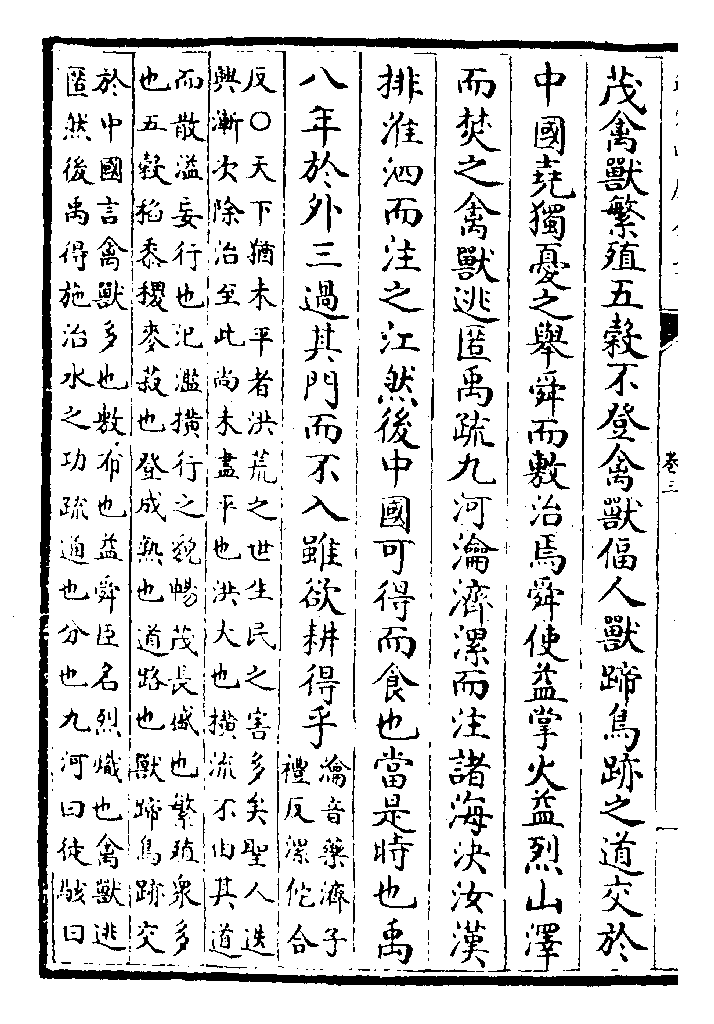 卷三
茂禽獸繁殖五穀不登禽獸偪人獸蹄鳥跡之道交於
中國堯獨憂之舉舜而敷治焉舜使益掌火益烈山澤
而焚之禽獸逃匿禹疏九河瀹濟漯而注諸海決汝漢
排淮泗而注之江然後中國可得而食也當是時也禹
八年於外三過其門而不入雖欲耕得乎
瀹音藥濟子
禮反漯佗合
反○天下猶未平者洪荒之世生民之害多矣聖人迭
興漸次除治至此尚未盡平也洪大也橫流不由其道
而散溢妄行也氾濫橫行之貌暢茂長盛也繁殖衆多
也五穀稻黍稷麥菽也登成熟也道路也獸蹄鳥跡交
於中國言禽獸多也敷布也益舜臣名烈熾也禽獸逃
匿然後禹得施治水之功疏通也分也九河曰徒駭曰